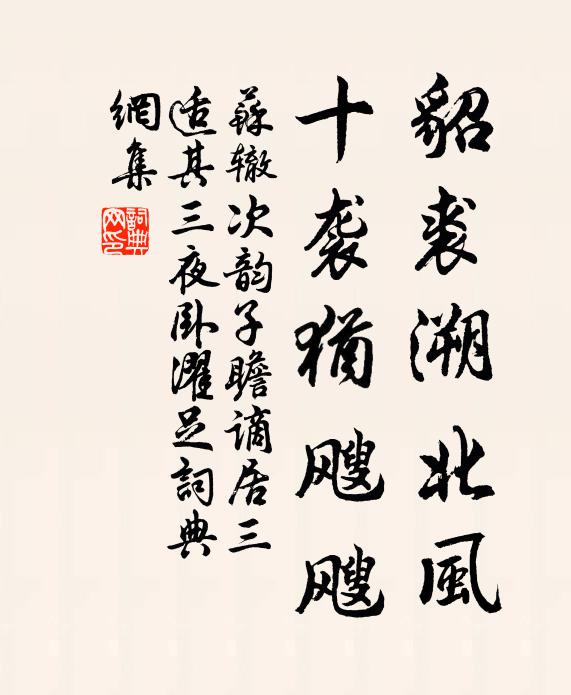 貂裘溯北風
十袭猶颼颼
蘇辙次韵子瞻谪居三
适其三夜卧濯足詞典
網集
詞典
网印